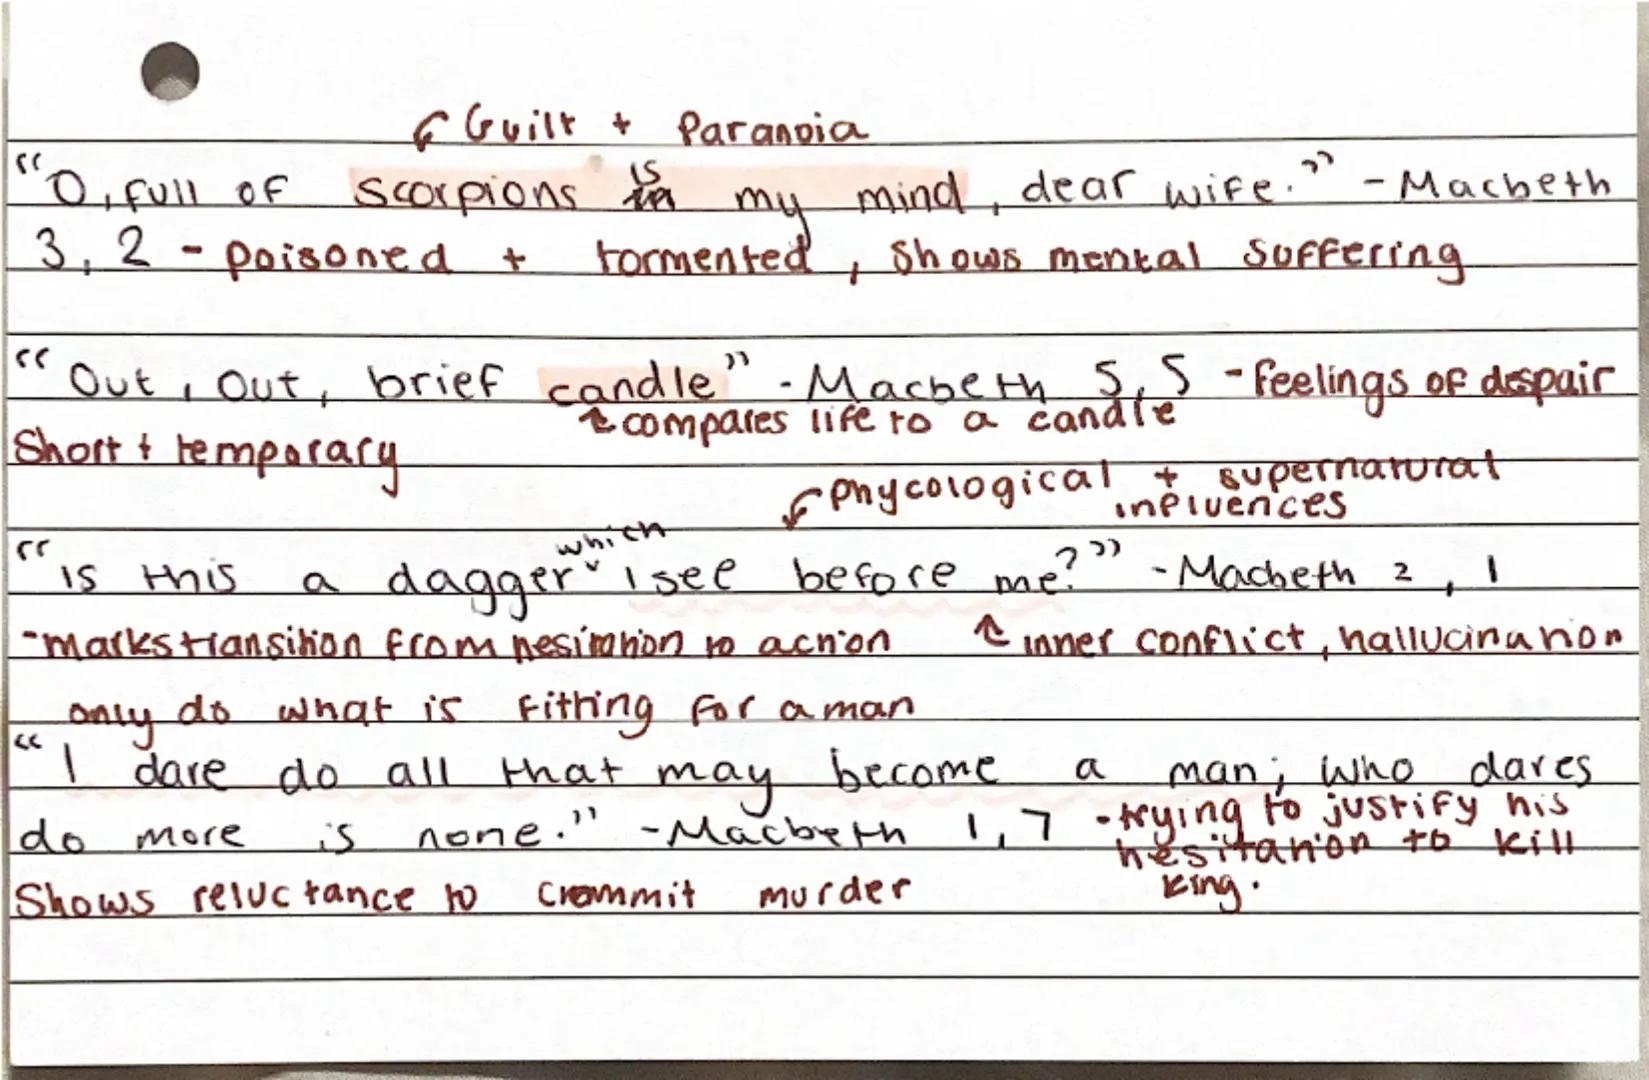 Guilt + Paranoia
"O, full of scorpions is my mind, dear wife." - Macbeth
3, 2 - poisoned + tormented, shows mental suffering
"Out, Out, brief candle" - Macbeth 5, 5 - feelings of despair
compares life to a candle
Short + temporary
phycological + supernatural
influences
which
"is this a dagger I see before me?" - Macbeth 2, 1
- marks transition from hesitation to action inner conflict, hallucination
only do what is fitting for a man
"I dare do all that may become a man; who dares
do more is none." - Macbeth 1, 7 - trying to justify his
hesitation to kill
king.
Shows reluctance to commit murder